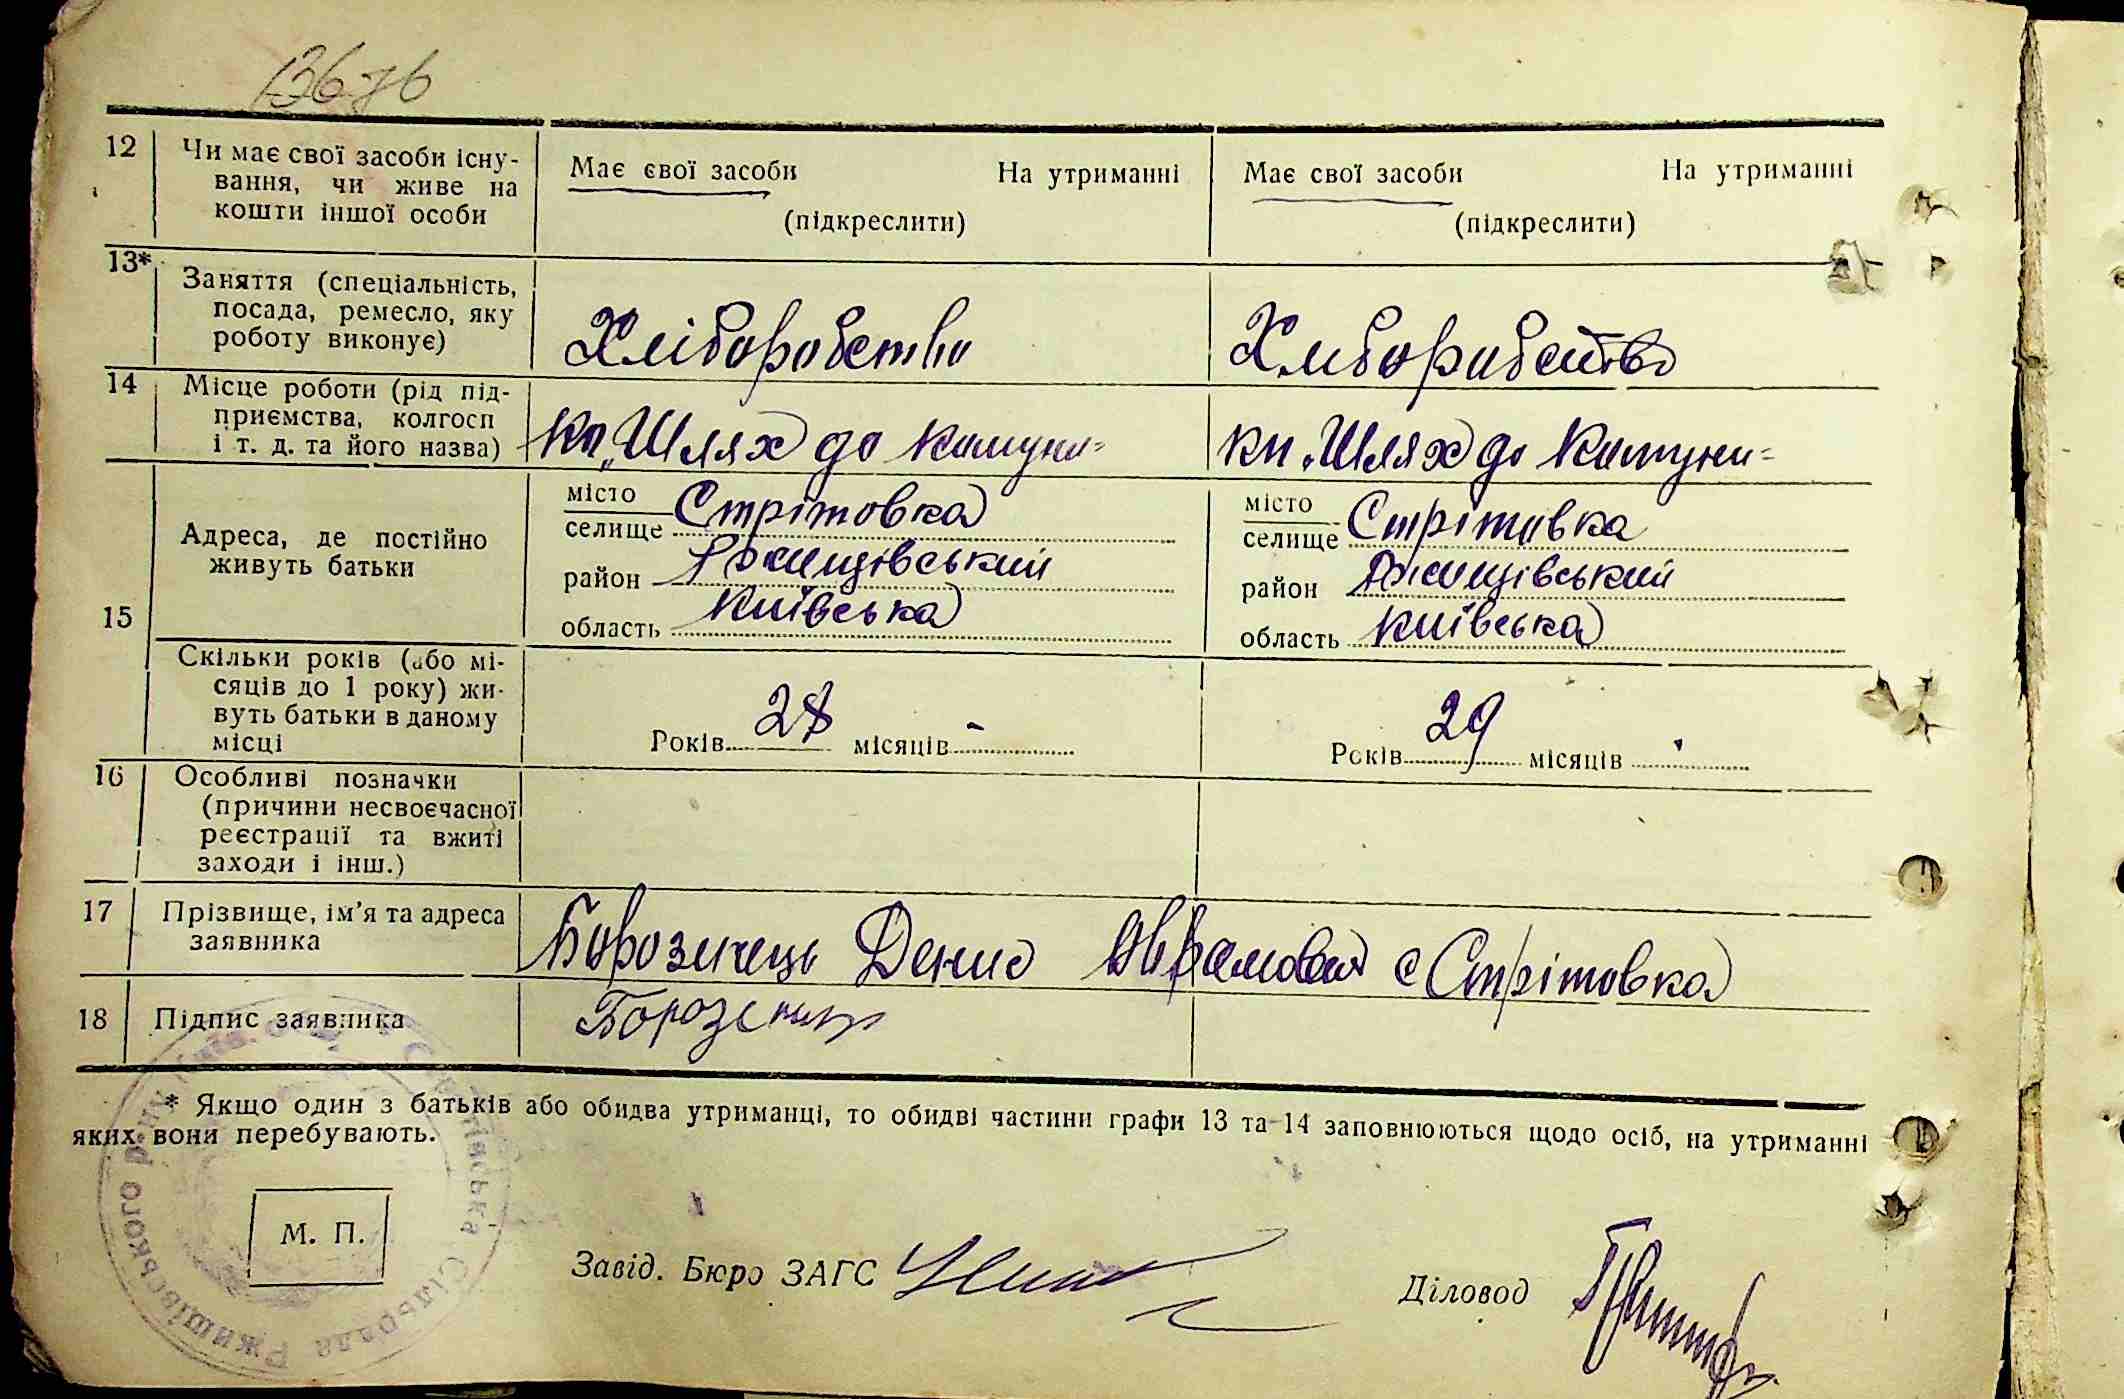 12
Чи має свої засоби існу-
вання, чи живе на
кошти іншої особи
Має свої засоби На утриманні
(підкреслити)
Має свої засоби На утриманні
(підкреслити)
13*
Заняття (спеціальність,
посада, ремесло, яку
роботу виконує)
Хліборобство
Хліборобство
14
Місце роботи (рід під-
приємства, колгосп
і т. д. та його назва)
"Шлях до Комуни-
"Шлях до Комуни-
15
Адреса, де постійно
живуть батьки
місто
селище Стрітовка
район Ржищівський
область Київська
місто
селище Стрітовка
район Ржищівський
область Київська
Скільки років (або мі-
сяців до 1 року) жи-
вуть батьки в даному
місці
Років 28 місяців -
Років 29 місяців
16
Особливі позначки
(причини несвоєчасної
реєстрації та вжиті
заходи і інш.)
17
Прізвище, ім'я та адреса
заявника
Борозенець Денис Аврамович с Стрітовка
18
Підпис заявника
* Якщо один з батьків або обидва утриманці, то обидві частини графи 13 та 14 заповнюються щодо осіб, на утриманні
яких вони перебувають.
М. П.
Завід. Бюро ЗАГС
Діловод
Сільрада Ржищівського р-ну